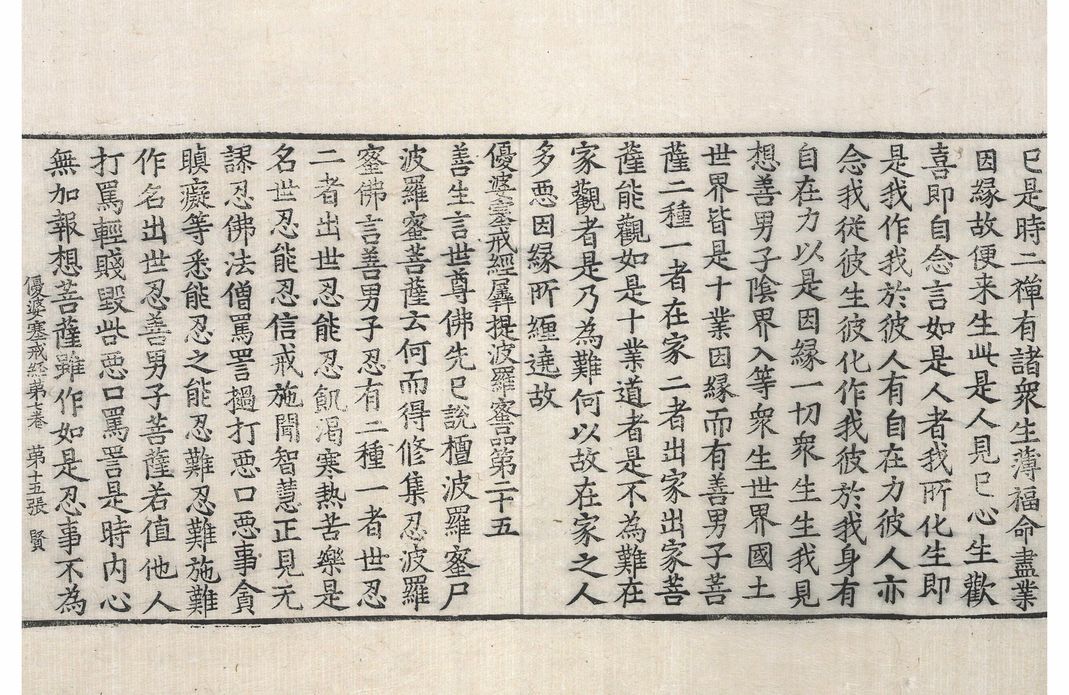 已是時二禪有諸衆生薄福命盡業
因緣故便来生此是人見已心生歡
喜即自念言如是人者我所化生即
是我作我於彼人有自在力彼人亦
念我從彼生彼化作我彼於我身有
自在力以是因緣一切衆生生我見
想善男子陰界入等衆生世界國土
世界皆是十業因緣而有善男子菩
薩二種一者在家二者出家出家菩
薩能觀如是十業道者是不為難在
家觀者是乃為難何以故在家之人
多惡因緣所纏遶故
優婆塞戒經羼提波羅蜜品第二十五
善生言世尊佛先已說檀波羅蜜尸
波羅蜜菩薩云何而得修集忍波羅
蜜佛言善男子忍有二種一者世忍
二者出世忍能忍飢渴寒熱苦樂是
名世忍能忍信戒施聞智慧正見无
謬忍佛法僧罵詈撾打惡口惡事貪
瞋癡等悉能忍之能忍難忍難施難
作名出世忍善男子菩薩若值他人
打罵輕賤毀呰惡口罵詈是時内心
無加報想菩薩雖作如是忍事不為
優婆塞戒経第七卷 第十五張 賢